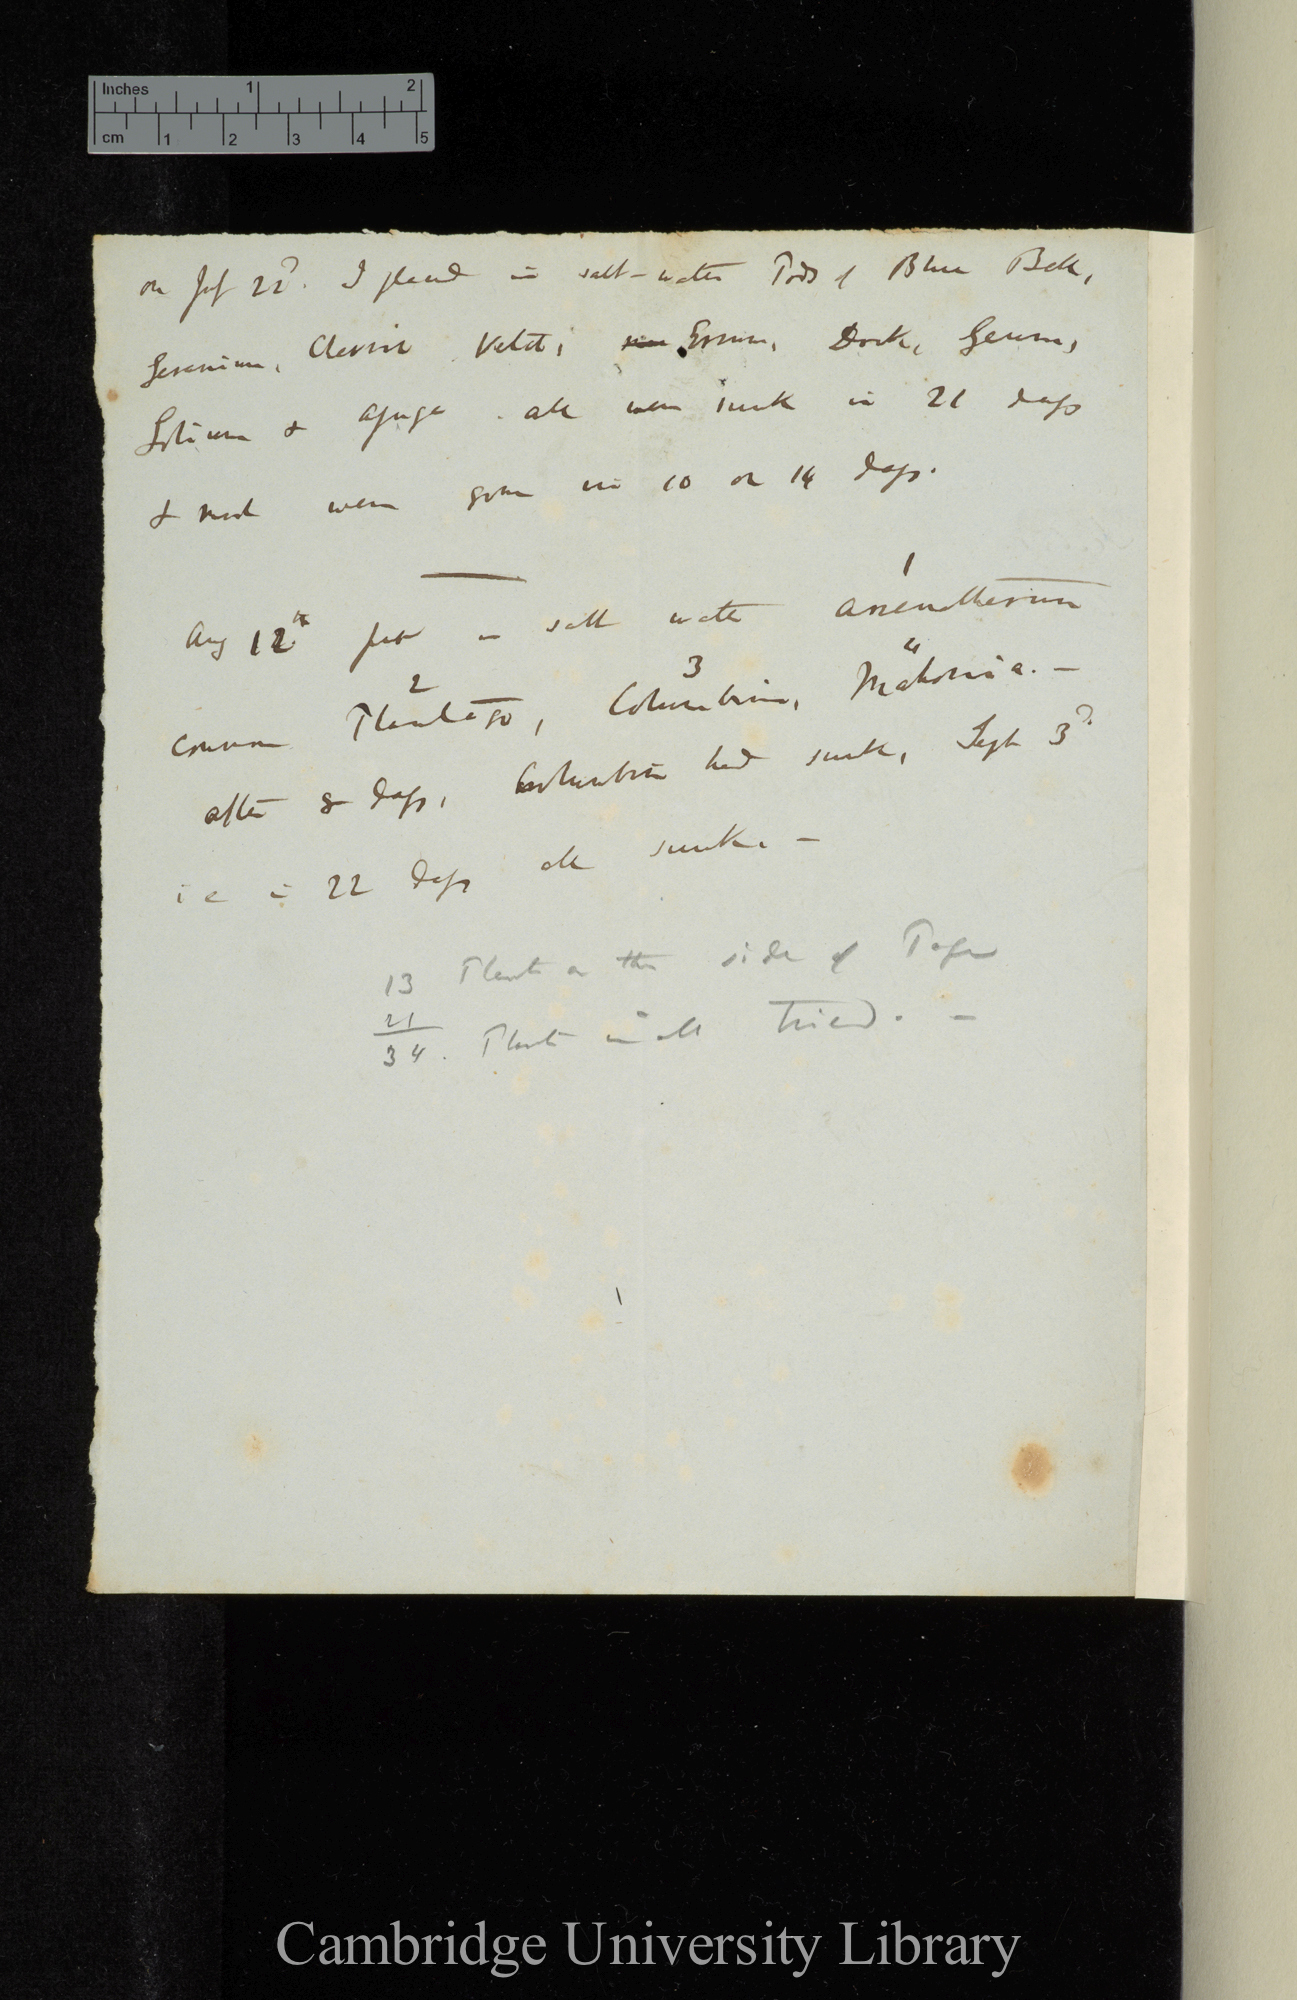 Inches 1 2
cm 1 2 3 4 5
on July 22d. I placed in salt-water Pods of Blue Bell,
Geranium, Clover Vetch, Ervum, Dock, Geum,
Lolium & Ajuga. all were sunk in 21 days
& most were gone in 10 or 14 days.
1
Aug 12th put in salt water Arrenatherium
2 3 4
common Plantago, Columbine, Mahonia. —
after 8 days, Columbine had sunk, Sept 3d.
i e in 22 days all sunk. —
13 Plants on the side of Page
21
34. Plants in all tried. —
Cambridge University Library